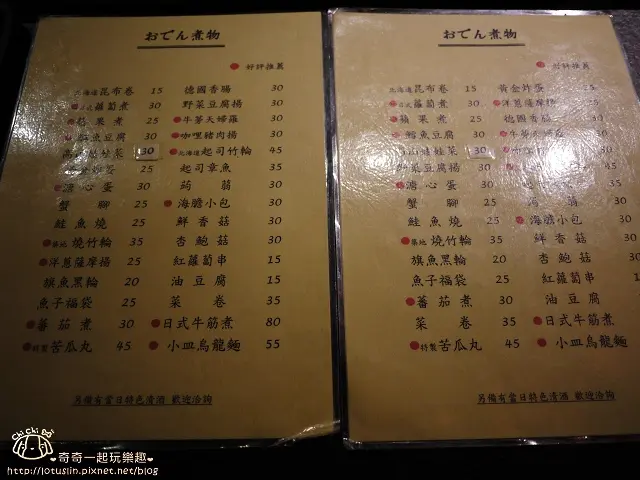 おでん煮物
好評推薦
北海道昆布卷 15 德國香腸 30
日式蘿蔔煮 30 野菜豆腐揚 30
蘋果煮 25 牛蒡天婦羅 30
鱈魚豆腐 30 咖哩豬肉揚 30
高山娃娃菜 30 北海道起司竹輪 45
25 起司章魚 35
溏心蛋 30 蒟蒻 30
蟹腳 25 海膽小包 30
鮭魚燒 25 鮮香菇 30
築地燒竹輪 35 杏鮑菇 30
洋蔥薩摩揚 25 紅蘿蔔串 15
旗魚黑輪 20 油豆腐 15
魚子福袋 25 菜卷 35
蕃茄煮 30 日式牛筋煮 80
特製苦瓜丸 45 小皿烏龍麵 55
另備有當日特色清酒 歡迎洽詢
おでん煮物
好評推薦
北海道昆布卷 15 黃金炸蛋 25
日式蘿蔔煮 30 洋蔥薩摩揚 25
蘋果煮 25 德國香腸 30
鱈魚豆腐 30 牛蒡天婦羅 30
娃娃菜 30
野菜豆腐揚 30
溏心蛋 30 蒟蒻
蟹腳 25 海膽小包
鮭魚燒 25 鮮香菇
築地燒竹輪 35 杏鮑菇 30
旗魚黑輪 20 紅蘿蔔串
魚子福袋 25 油豆腐
蕃茄煮 30 菜卷
菜卷 35 日式牛筋煮
特製苦瓜丸 45 小皿烏龍麵
另備有當日特色清酒 歡迎洽詢
Chi Chi
奇奇一起玩樂趣
http://lotuslin.pixnet.net/blog